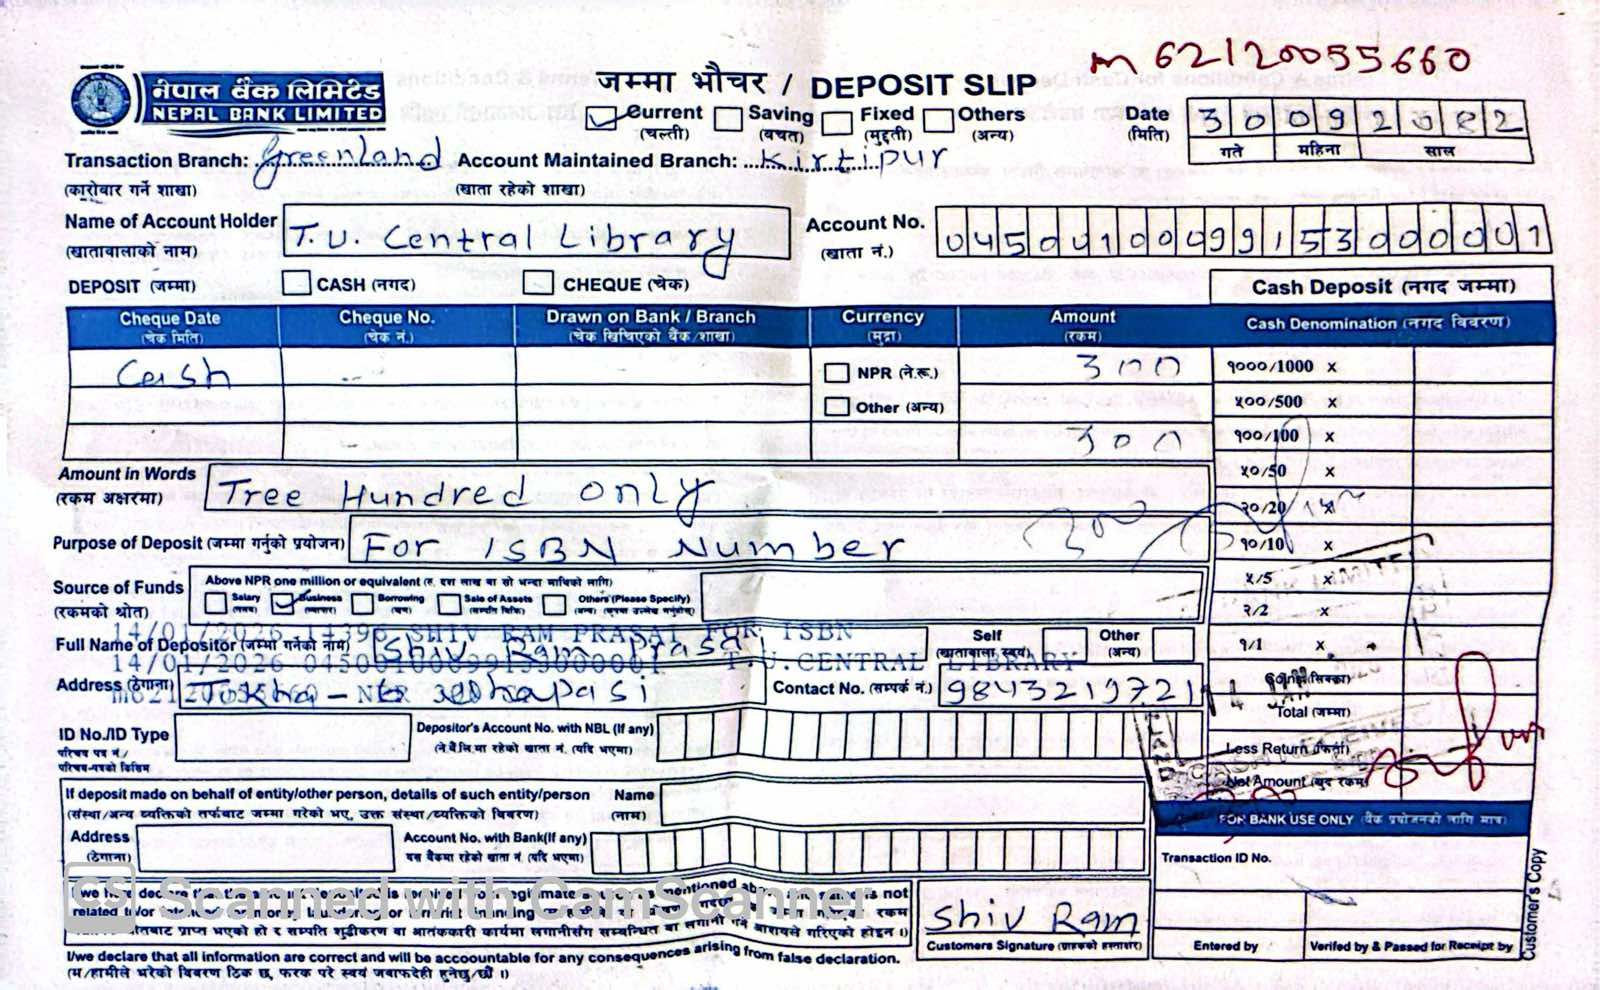 m 62120055660
नेपाल बैंक लिमिटेड
NEPAL BANK LIMITED
जम्मा भौचर / DEPOSIT SLIP
Current (चल्ती) Saving (बचत) Fixed (मुद्दती) Others (अन्य)
Date (मिति) 30 09 2082
गते महिना साल
Transaction Branch: Greenland Account Maintained Branch: Kirtipur
(कारोवार गर्ने शाखा) (खाता रहेको शाखा)
Name of Account Holder T.U. Central Library Account No. 04500100099153000001
(खातावालाको नाम) (खाता नं.)
DEPOSIT (जम्मा) CASH (नगद) CHEQUE (चेक) Cash Deposit (नगद जम्मा)
Cheque Date Cheque No. Drawn on Bank / Branch Currency Amount Cash Denomination (नगद विवरण)
(चेक मिति) (चेक नं.) (चेक खिचिएको बैंक/शाखा) (मुद्रा) (रकम)
Cash NPR (ने.रू.) 300 १०००/1000 x
Other (अन्य) ५००/500 x
300 १००/100 x
Amount in Words Tree Hundred only ५०/50 x
(रकम अक्षरमा) २०/20 x
Purpose of Deposit (जम्मा गर्नुको प्रयोजन) For ISBN Number १०/10 x
Source of Funds Above NPR one million or equivalent (रु. दश लाख वा सो भन्दा माथिको लागि) ५/5 x
(रकमको श्रोत) Salary Business Borrowing Sale of Assets Others (Please Specify) २/2 x
14/01/2026 14396 SHIV RAM PRASAI FOR ISBN
Full Name of Depositor (जम्मा गर्नेको नाम) Shiv Ram Prasai Self (खातावाला स्वयं) Other (अन्य) १/1 x
14/01/2026 04500100099153000001 T.U.CENTRAL LIBRARY
Address (ठेगाना) Tokha - Dhapasi Contact No. (सम्पर्क नं.) 9843219721 Coins (सिक्का)
Total (जम्मा)
ID No./ID Type Depositor's Account No. with NBL (If any)
परिचय पत्र नं./ (ने.बै.लि.मा रहेको खाता नं. (यदि भएमा) Less Return (फिर्ता)
परिचय-पत्रको किसिम
CASH RECEIVED
Net Amount (खुद रकम)
If deposit made on behalf of entity/other person, details of such entity/person Name
(संस्था/अन्य व्यक्तिको तर्फबाट जम्मा गरेको भए, उक्त संस्था/व्यक्तिको विवरण) (नाम)
FOR BANK USE ONLY (बैंक प्रयोजनको लागि मात्र)
Address Account No. with Bank(If any)
(ठेगाना) यस बैंकमा रहेको खाता नं. (यदि भएमा)
Transaction ID No.
Customer's Copy
CS Scanned with CamScanner
Shiv Ram
Customers Signature (ग्राहकको हस्ताक्षर) Entered by Verifed by & Passed for Receipt by
I/we declare that all information are correct and will be accoountable for any consequences arising from false declaration.
(म/हामीले भरेको विवरण ठिक छ, फरक परे स्वयं जवाफदेही हुनेछु/छौं ।)